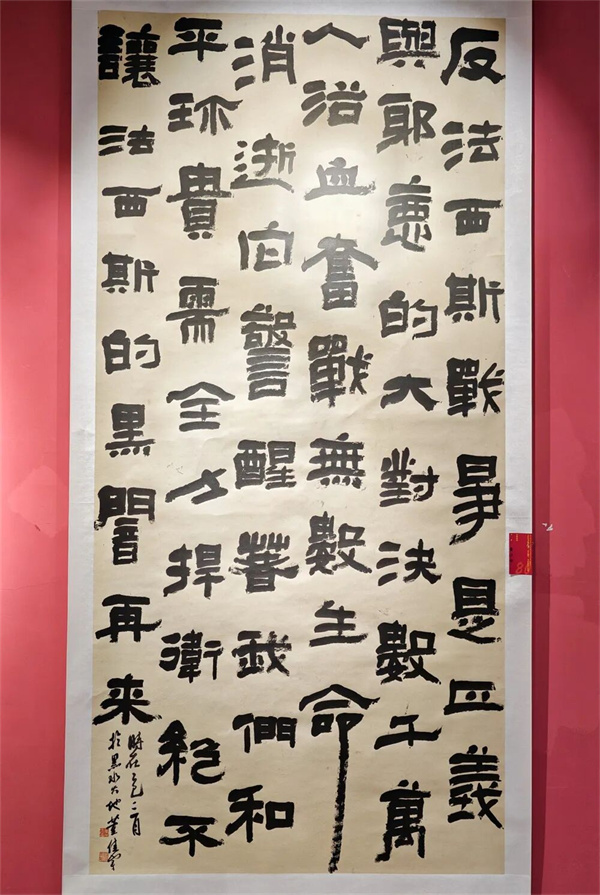 反法西斯戰爭是正義
與邪惡的大對決數千萬
人浴血奮戰無數生命
消逝它警醒著我們和
平珎貴需全力捍衛絕不
讓法西斯的黑闇再来
時在乙巳二月
於黑水大地董